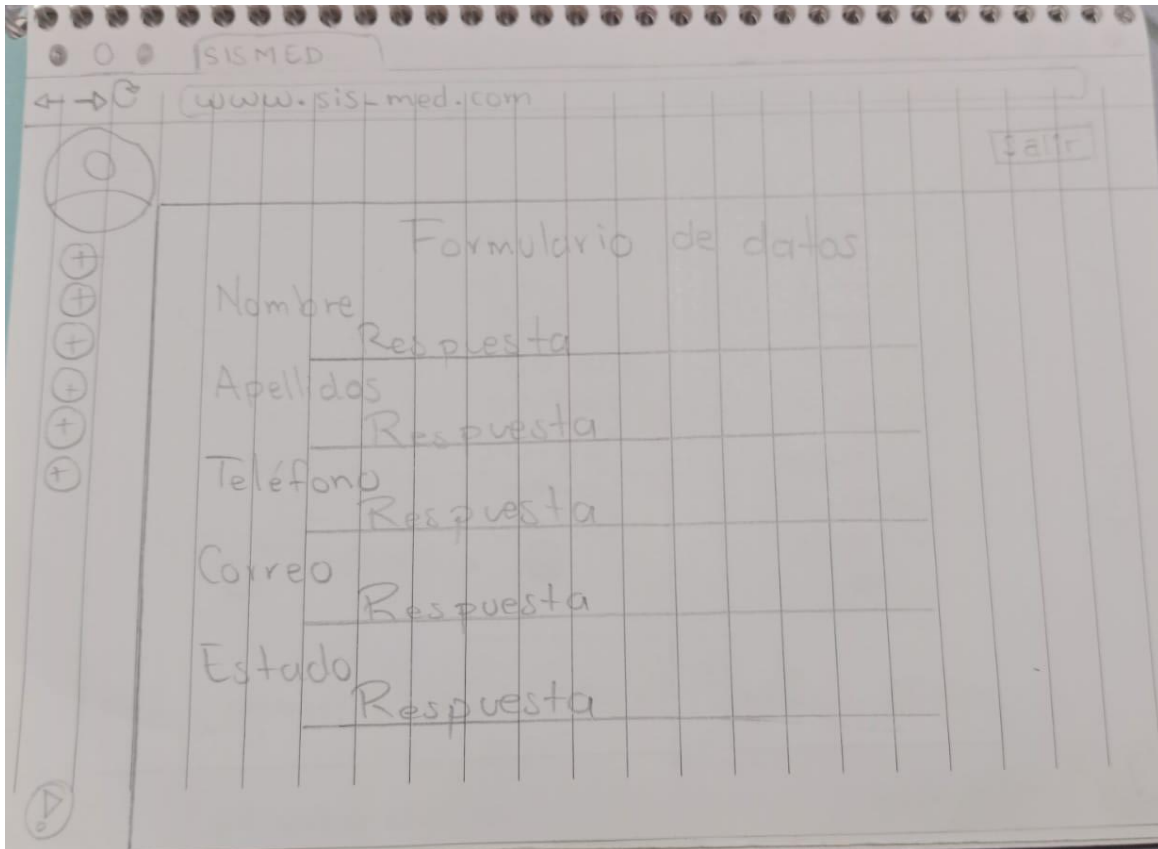 SISMED
www.sis-med.com
Salir
Formulario de datos
Nombre
Respuesta
Apellidos
Respuesta
Teléfono
Respuesta
Correo
Respuesta
Estado
Respuesta